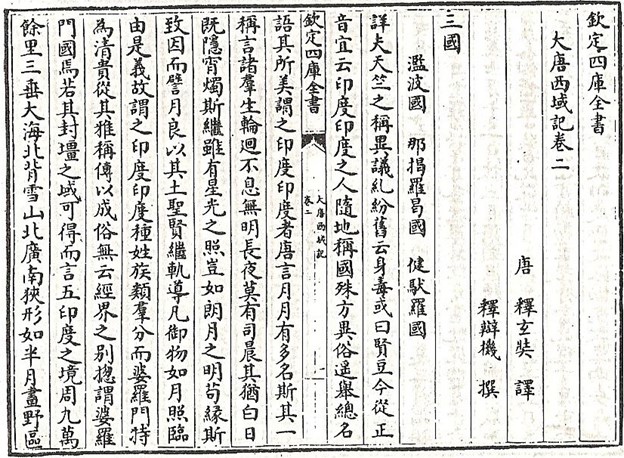 欽定四庫全書
大唐西域記卷二
唐 釋玄奘 譯
釋辯機 撰
三國
濫波國 那揭羅曷國 健馱羅國
詳夫天竺之稱異議糺紛舊云身毒或曰賢豆今從正
音宜云印度印度之人隨地稱國殊方異俗遙舉總名
欽定四庫全書
大唐西域記
卷二
語其所美謂之印度印度者唐言月月有多名斯其一
稱言諸羣生輪迴不息無明長夜莫有司晨其猶白日
既隱宵燭斯繼雖有星光之照豈如朗月之明苟緣斯
致因而譬月良以其土聖賢繼軌導凡御物如月照臨
由是義故謂之印度印度種姓族類羣分而婆羅門特
為清貴從其雅稱傳以成俗無云經界之別揔謂婆羅
門國焉若其封壃之域可得而言五印度之境周九萬
餘里三垂大海北背雪山北廣南狹形如半月畫野區